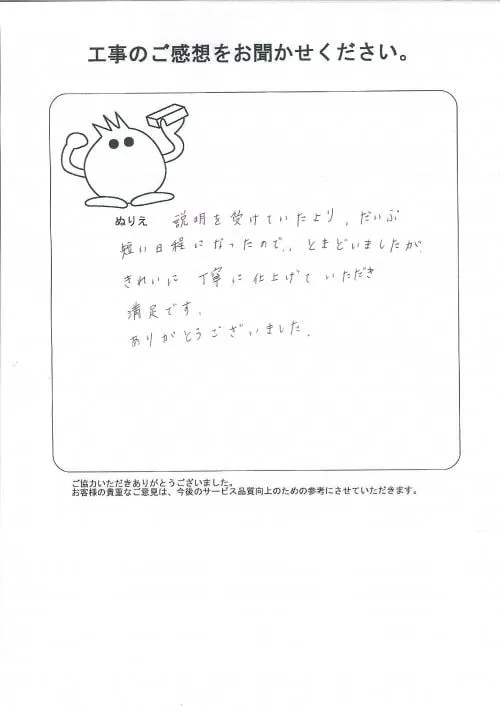 工事のご感想をお聞かせください。
ぬりえ
説明を受けていたより、だいぶ
短い日程になったので、とまどいましたが、
きれいに丁寧に仕上げていただき
満足です。
ありがとうございました。
ご協力いただきありがとうございました。
お客様の貴重なご意見は、今後のサービス品質向上のための参考にさせていただきます。